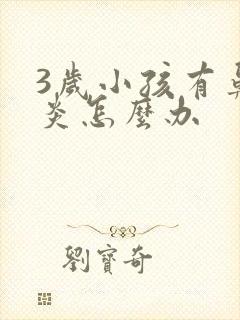 3歲小孩有鼻
炎怎麼办
劉寶奇